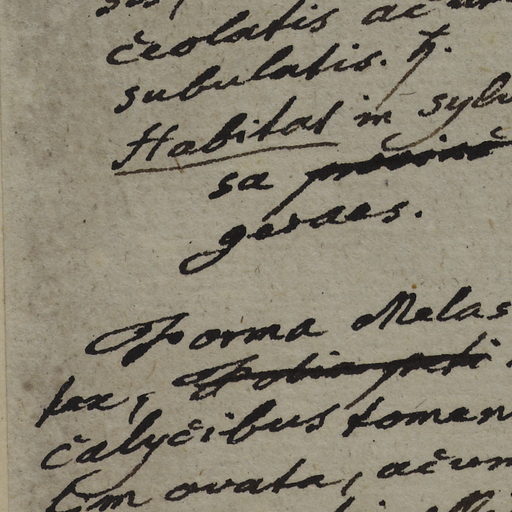 ceolatis ac
subulatis. ♄.
Habitat in sylv
sa
geraes.
Forma Melas
tax,
calycibus tomen
tm ovata, acum